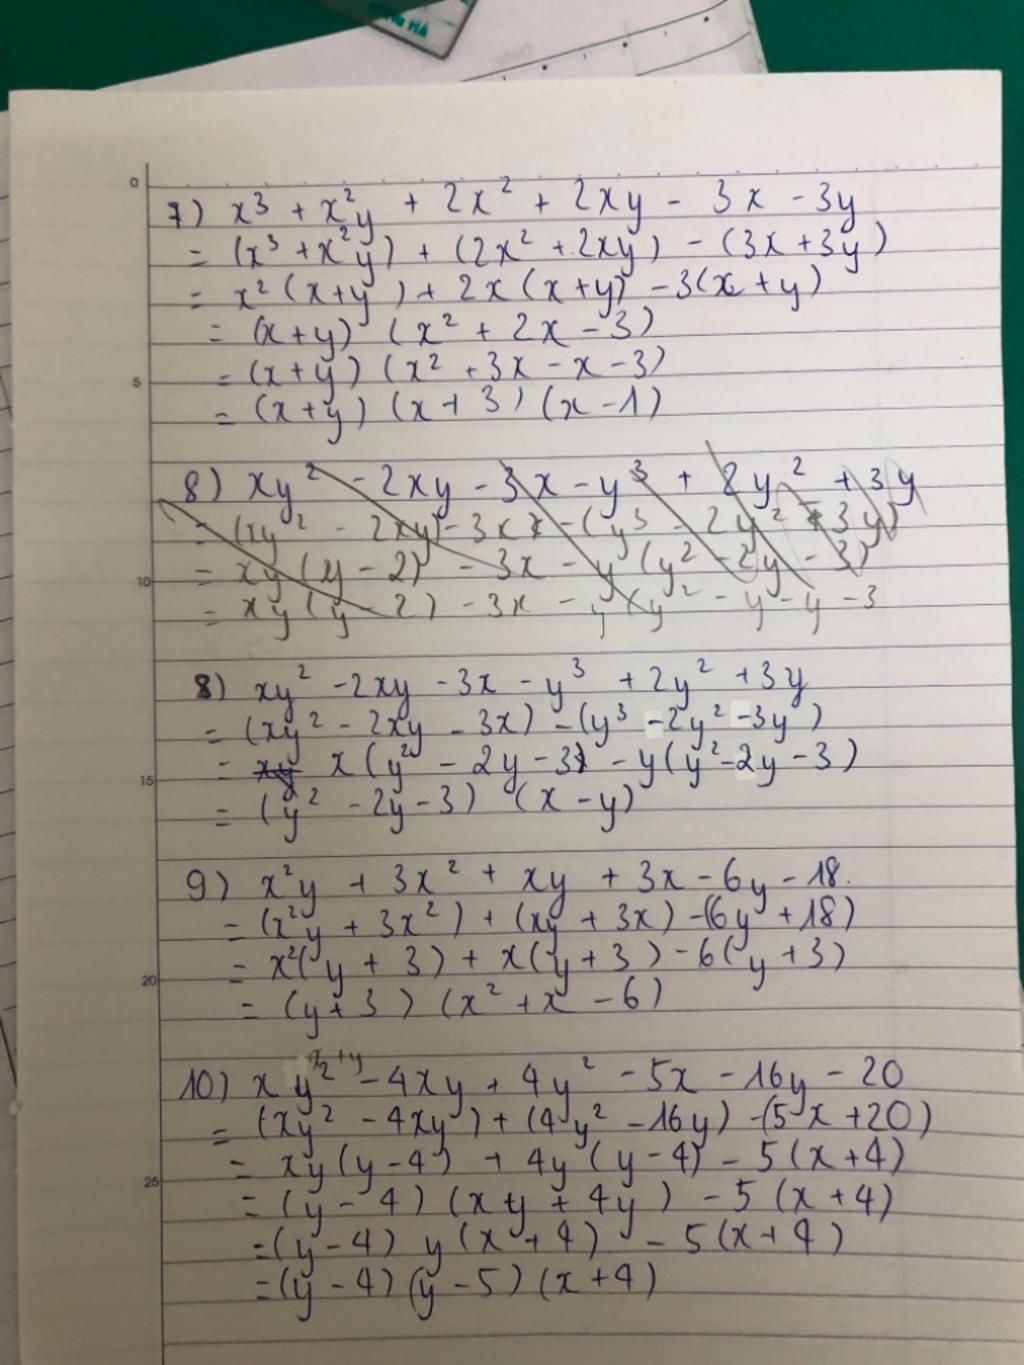 NG HÀ
0
7) x³ + x²y + 2x² + 2xy - 3x - 3y
= (x³ + x²y) + (2x² + 2xy) - (3x + 3y)
= x²(x+y) + 2x(x+y) - 3(x+y)
= (x+y) (x² + 2x - 3)
5
= (x+y) (x² + 3x - x - 3)
= (x+y) (x+3) (x-1)
8) xy² - 2xy - 3x - y³ + 2y² + 3y
= (xy² - 2xy) - 3x - (y³ - 2y² - 3y)
10
= xy(y-2) - 3x - y(y² - 2y - 3)
= xy(y-2) - 3x - y(y² - y - y - 3
8) xy² - 2xy - 3x - y³ + 2y² + 3y
= (xy² - 2xy - 3x) - (y³ - 2y² - 3y)
15
= xy x(y² - 2y - 3) - y(y² - 2y - 3)
= (y² - 2y - 3) (x - y)
9) x²y + 3x² + xy + 3x - 6y - 18.
= (x²y + 3x²) + (xy + 3x) - (6y + 18)
20
= x²(y + 3) + x(y+3) - 6(y+3)
= (y+3) (x² + x - 6)
10) xy² - 4xy + 4y² - 5x - 16y - 20
= (xy² - 4xy) + (4y² - 16y) - (5x + 20)
25
= xy(y-4) + 4y(y-4) - 5(x+4)
= (y - 4) (xy + 4y) - 5(x+4)
= (y-4) y(x+4) - 5(x+4)
= (y - 4) (y - 5) (x+4)